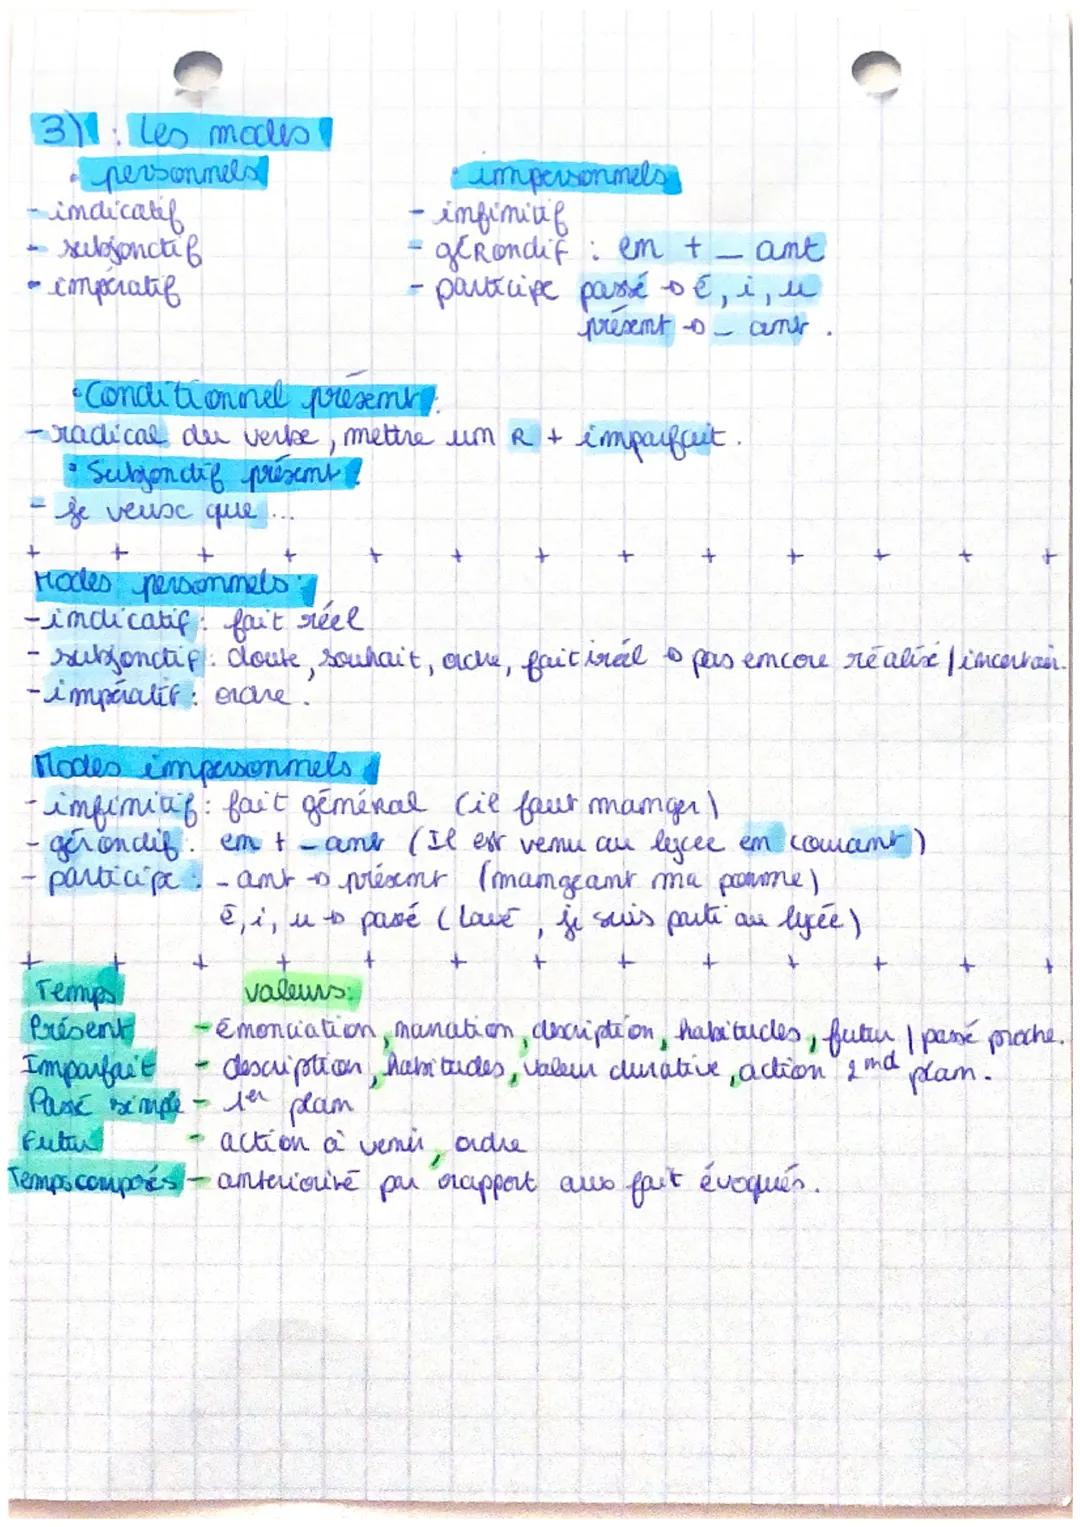 3) : Les modes
• personnels
- indicatif
- subjonctif
- impératif
• impersonnels
- infinitif
- géRondif : en + _ ant
- participe passé → é, i, u
présent → _ ant .
• Conditionnel présent :
- radical du verbe, mettre un R + imparfait .
• Subjonctif présent :
- je veux que ...
+ + + + + + + + + + + + +
Modes personnels :
- indicatif : fait réel
- subjonctif : doute, souhait, ordre, fait iréel → pas encore réalisé / incertain.
- impératif : ordre .
Modes impersonnels
- infinitif : fait général (il faut manger)
- gérondif : en + _ ant (Il est venu au lycée en courant)
- participe : _ ant → présent (mangeant ma pomme)
é, i, u → passé (lavé, je suis parti au lycée)
+ + + + + + + + + + + + +
Temps valeurs :
Présent - énonciation, narration, description, habitudes, futur / passé proche.
Imparfait - description, habitudes, valeur durative, action 2nd plan.
Passé simple - 1er plan
Futur - action à venir, ordre
Temps composés - anteriorité par rapport aux fait évoqués.